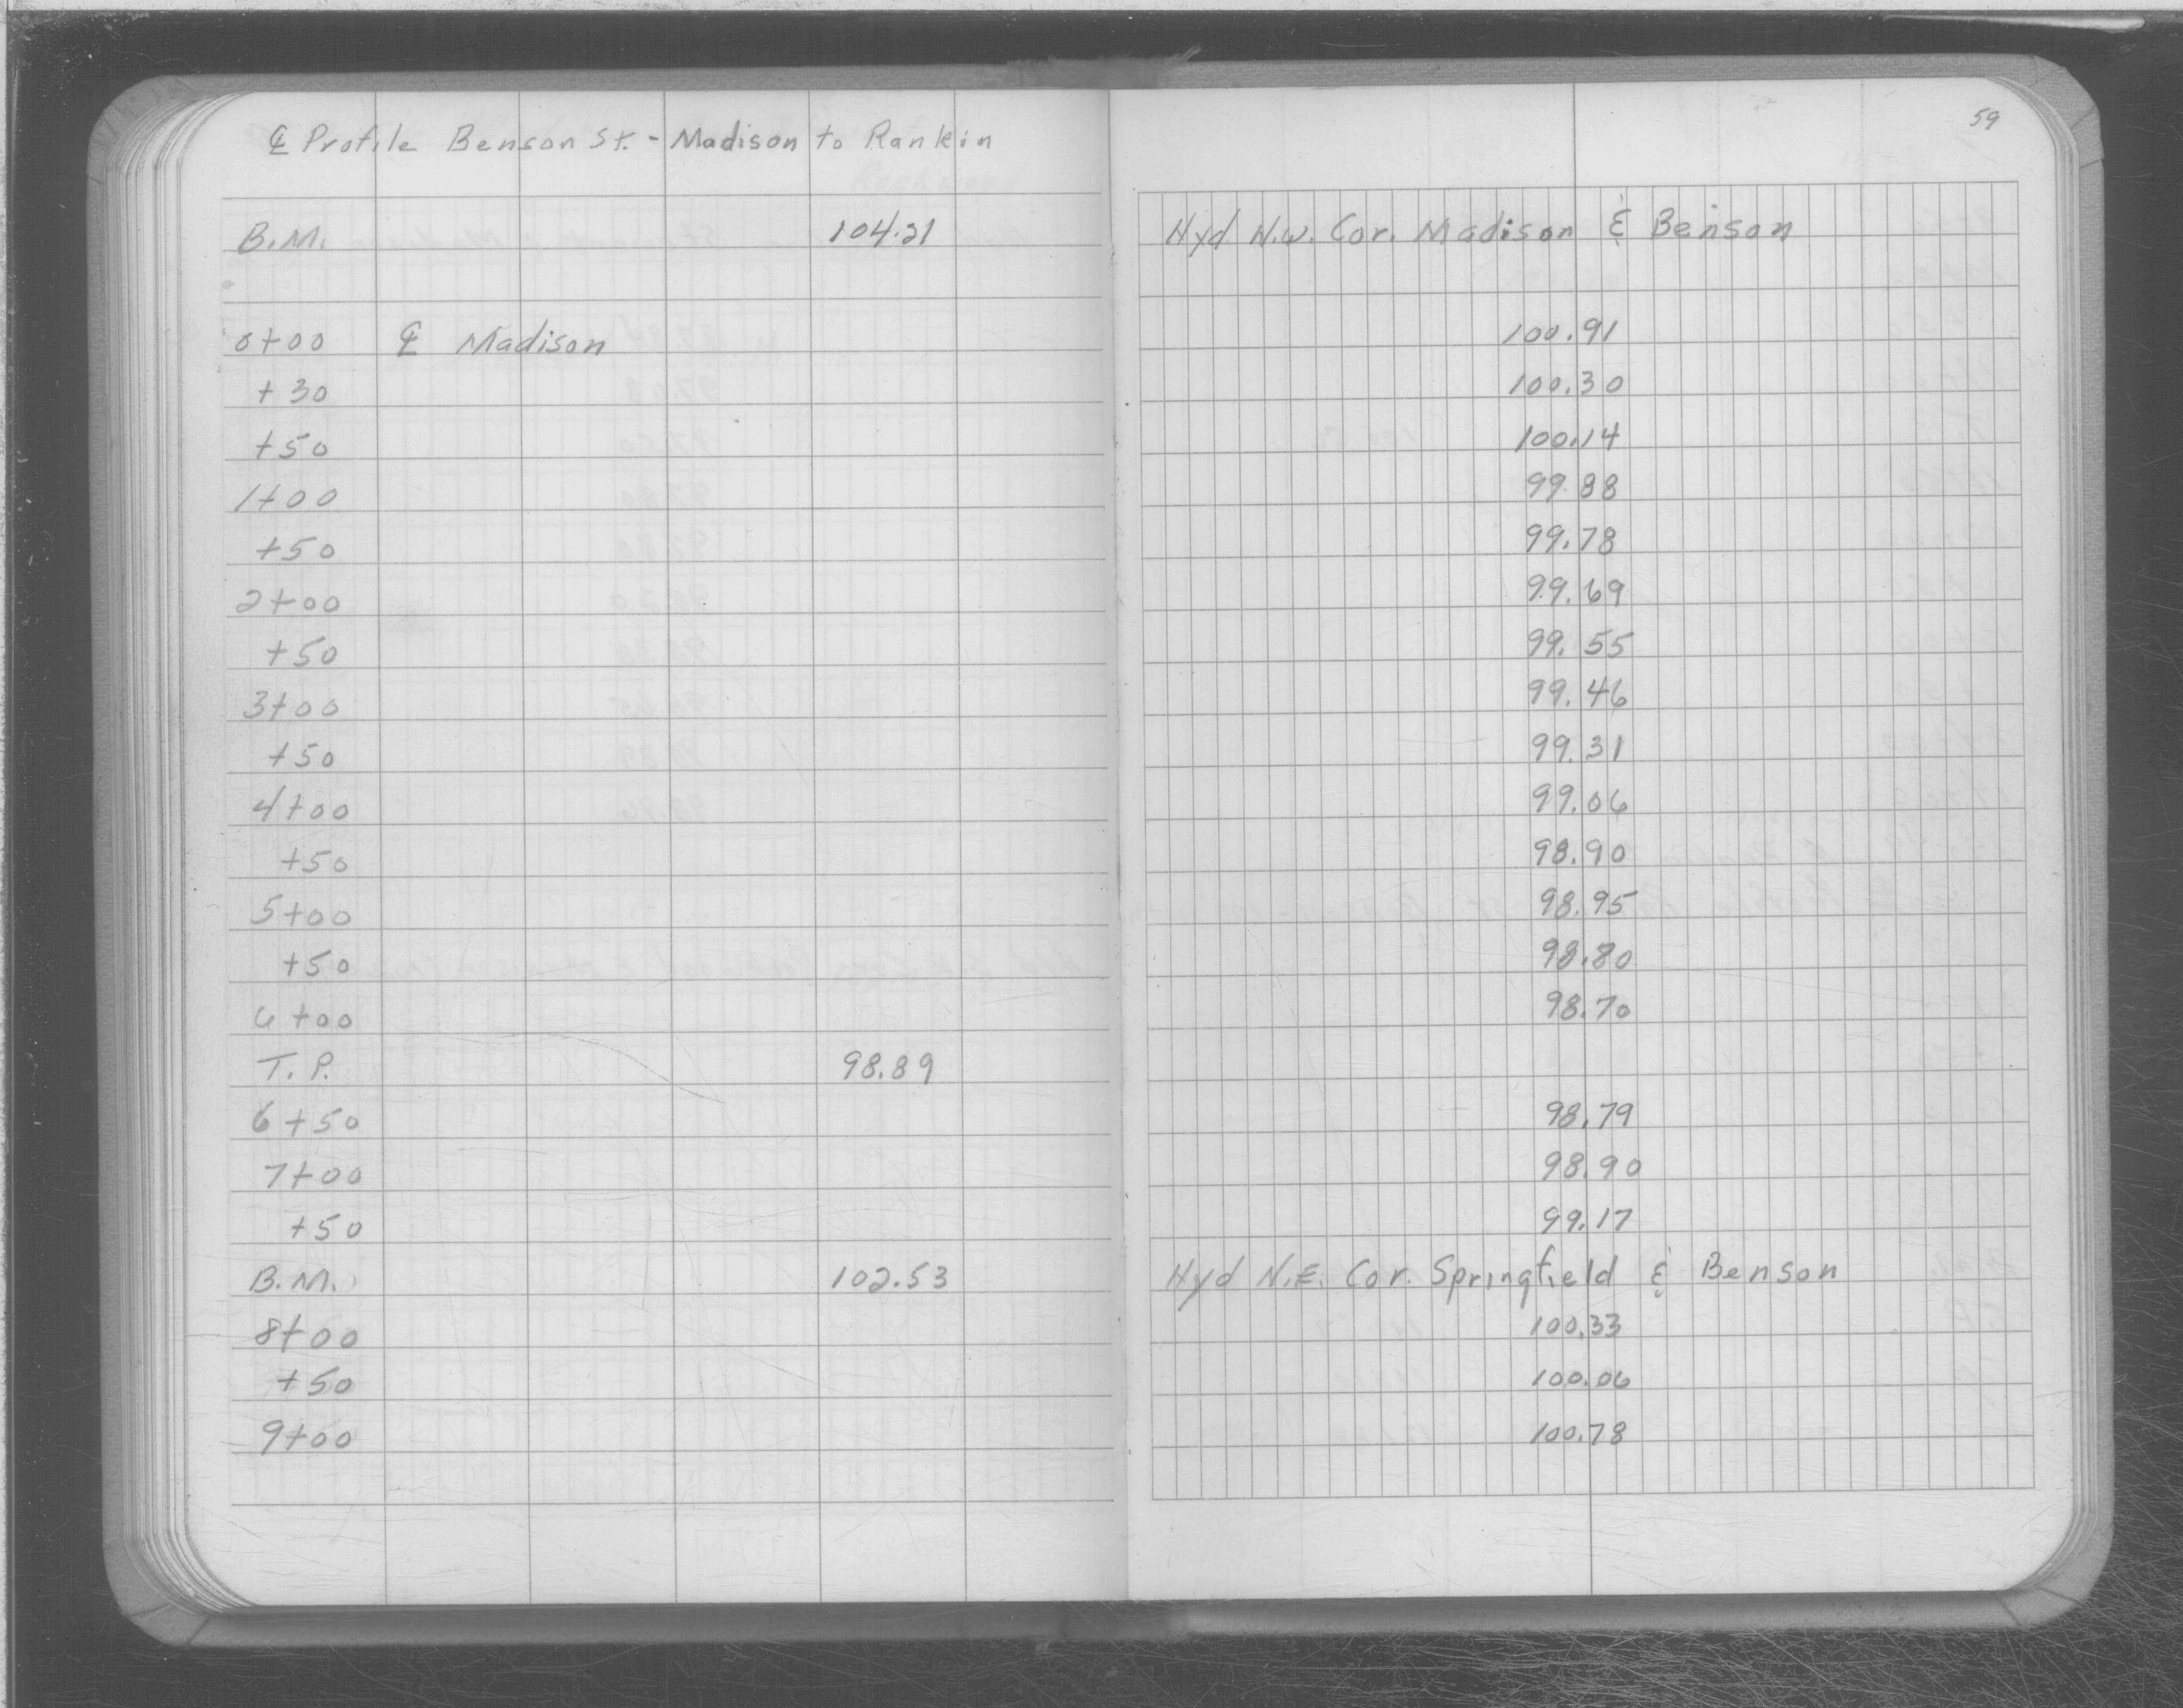 59
℄ Profile Benson St. - Madison to Rankin
B.M. 104.21 Hyd N.W. Cor. Madison & Benson
0+00 ℄ Madison 100.91
+30 100.30
+50 100.14
1+00 99.88
+50 99.78
2+00 99.69
+50 99.55
3+00 99.46
+50 99.31
4+00 99.06
+50 98.90
5+00 98.95
+50 98.80
6+00 98.70
T.P. 98.89
6+50 98.79
7+00 98.90
+50 99.17
B.M. 102.53 Hyd N.E. Cor. Springfield & Benson
8+00 100.33
+50 100.06
9+00 100.78